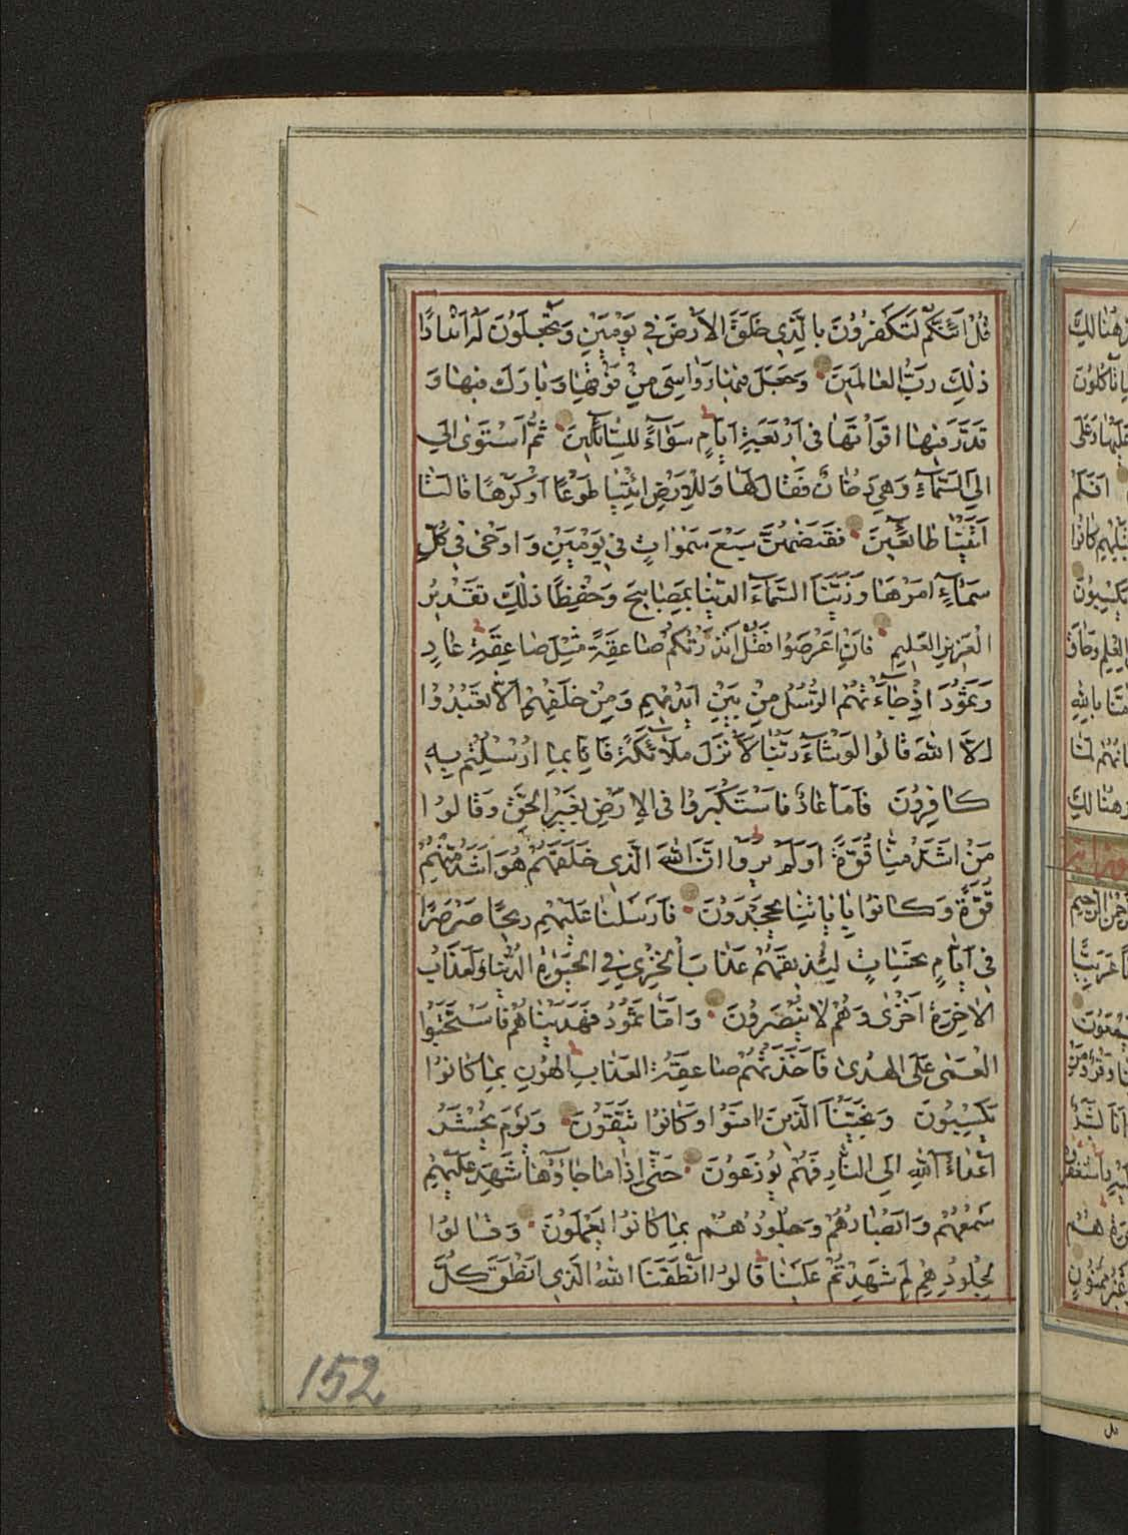 قُلْ اَئِنَّكُمْ لَتَكْفُرُونَ بِالَّذِى خَلَقَ الْاَرْضَ فِى يَوْمَيْنِ وَتَجْعَلُونَ لَهُ اَنْدَادًا
ذٰلِكَ رَبُّ الْعَالَمِينَ وَجَعَلَ فِيهَا رَوَاسِىَ مِنْ فَوْقِهَا وَبَارَكَ فِيهَا وَ
قَدَّرَ فِيهَا اَقْوَاتَهَا فِى اَرْبَعَةِ اَيَّامٍ سَوَاءً لِلسَّائِلِينَ ثُمَّ اسْتَوٰى اِلَى
اِلَى السَّمَاءِ وَهِىَ دُخَانٌ فَقَالَ لَهَا وَلِلْاَرْضِ ائْتِيَا طَوْعًا اَوْ كَرْهًا قَالَتَا
اَتَيْنَا طَائِعِينَ فَقَضٰيهُنَّ سَبْعَ سَمٰوَاتٍ فِى يَوْمَيْنِ وَاَوْحٰى فِى كُلِّ
سَمَاءٍ اَمْرَهَا وَزَيَّنَّا السَّمَاءَ الدُّنْيَا بِمَصَابِيحَ وَحِفْظًا ذٰلِكَ تَقْدِيرُ
الْعَزِيزِ الْعَلِيمِ فَاِنْ اَعْرَضُوا فَقُلْ اَنْذَرْتُكُمْ صَاعِقَةً مِثْلَ صَاعِقَةِ عَادٍ
وَثَمُودَ اِذْ جَاءَتْهُمُ الرُّسُلُ مِنْ بَيْنِ اَيْدِيهِمْ وَمِنْ خَلْفِهِمْ اَلَّا تَعْبُدُوا
اِلَّا اللّٰهَ قَالُوا لَوْ شَاءَ رَبُّنَا لَاَنْزَلَ مَلَائِكَةً فَاِنَّا بِمَا اُرْسِلْتُمْ بِهِ
كَافِرُونَ فَاَمَّا عَادٌ فَاسْتَكْبَرُوا فِى الْاَرْضِ بِغَيْرِ الْحَقِّ وَقَالُوا
مَنْ اَشَدُّ مِنَّا قُوَّةً اَوَلَمْ يَرَوْا اَنَّ اللّٰهَ الَّذِى خَلَقَهُمْ هُوَ اَشَدُّ مِنْهُمْ
قُوَّةً وَكَانُوا بِاٰيَاتِنَا يَجْحَدُونَ فَاَرْسَلْنَا عَلَيْهِمْ رِيحًا صَرْصَرًا
فِى اَيَّامٍ نَحِسَاتٍ لِنُذِيقَهُمْ عَذَابَ الْخِزْىِ فِى الْحَيٰوةِ الدُّنْيَا وَلَعَذَابُ
الْاٰخِرَةِ اَخْزٰى وَهُمْ لَا يُنْصَرُونَ وَاَمَّا ثَمُودُ فَهَدَيْنَاهُمْ فَاسْتَحَبُّوا
الْعَمٰى عَلَى الْهُدٰى فَاَخَذَتْهُمْ صَاعِقَةُ الْعَذَابِ الْهُونِ بِمَا كَانُوا
يَكْسِبُونَ وَنَجَّيْنَا الَّذِينَ اٰمَنُوا وَكَانُوا يَتَّقُونَ وَيَوْمَ يُحْشَرُ
اَعْدَاءُ اللّٰهِ اِلَى النَّارِ فَهُمْ يُوزَعُونَ حَتّٰى اِذَا مَا جَاؤُهَا شَهِدَ عَلَيْهِمْ
سَمْعُهُمْ وَاَبْصَارُهُمْ وَجُلُودُهُمْ بِمَا كَانُوا يَعْمَلُونَ وَقَالُوا
لِجُلُودِهِمْ لِمَ شَهِدْتُمْ عَلَيْنَا قَالُوا اَنْطَقَنَا اللّٰهُ الَّذِى اَنْطَقَ كُلَّ
152